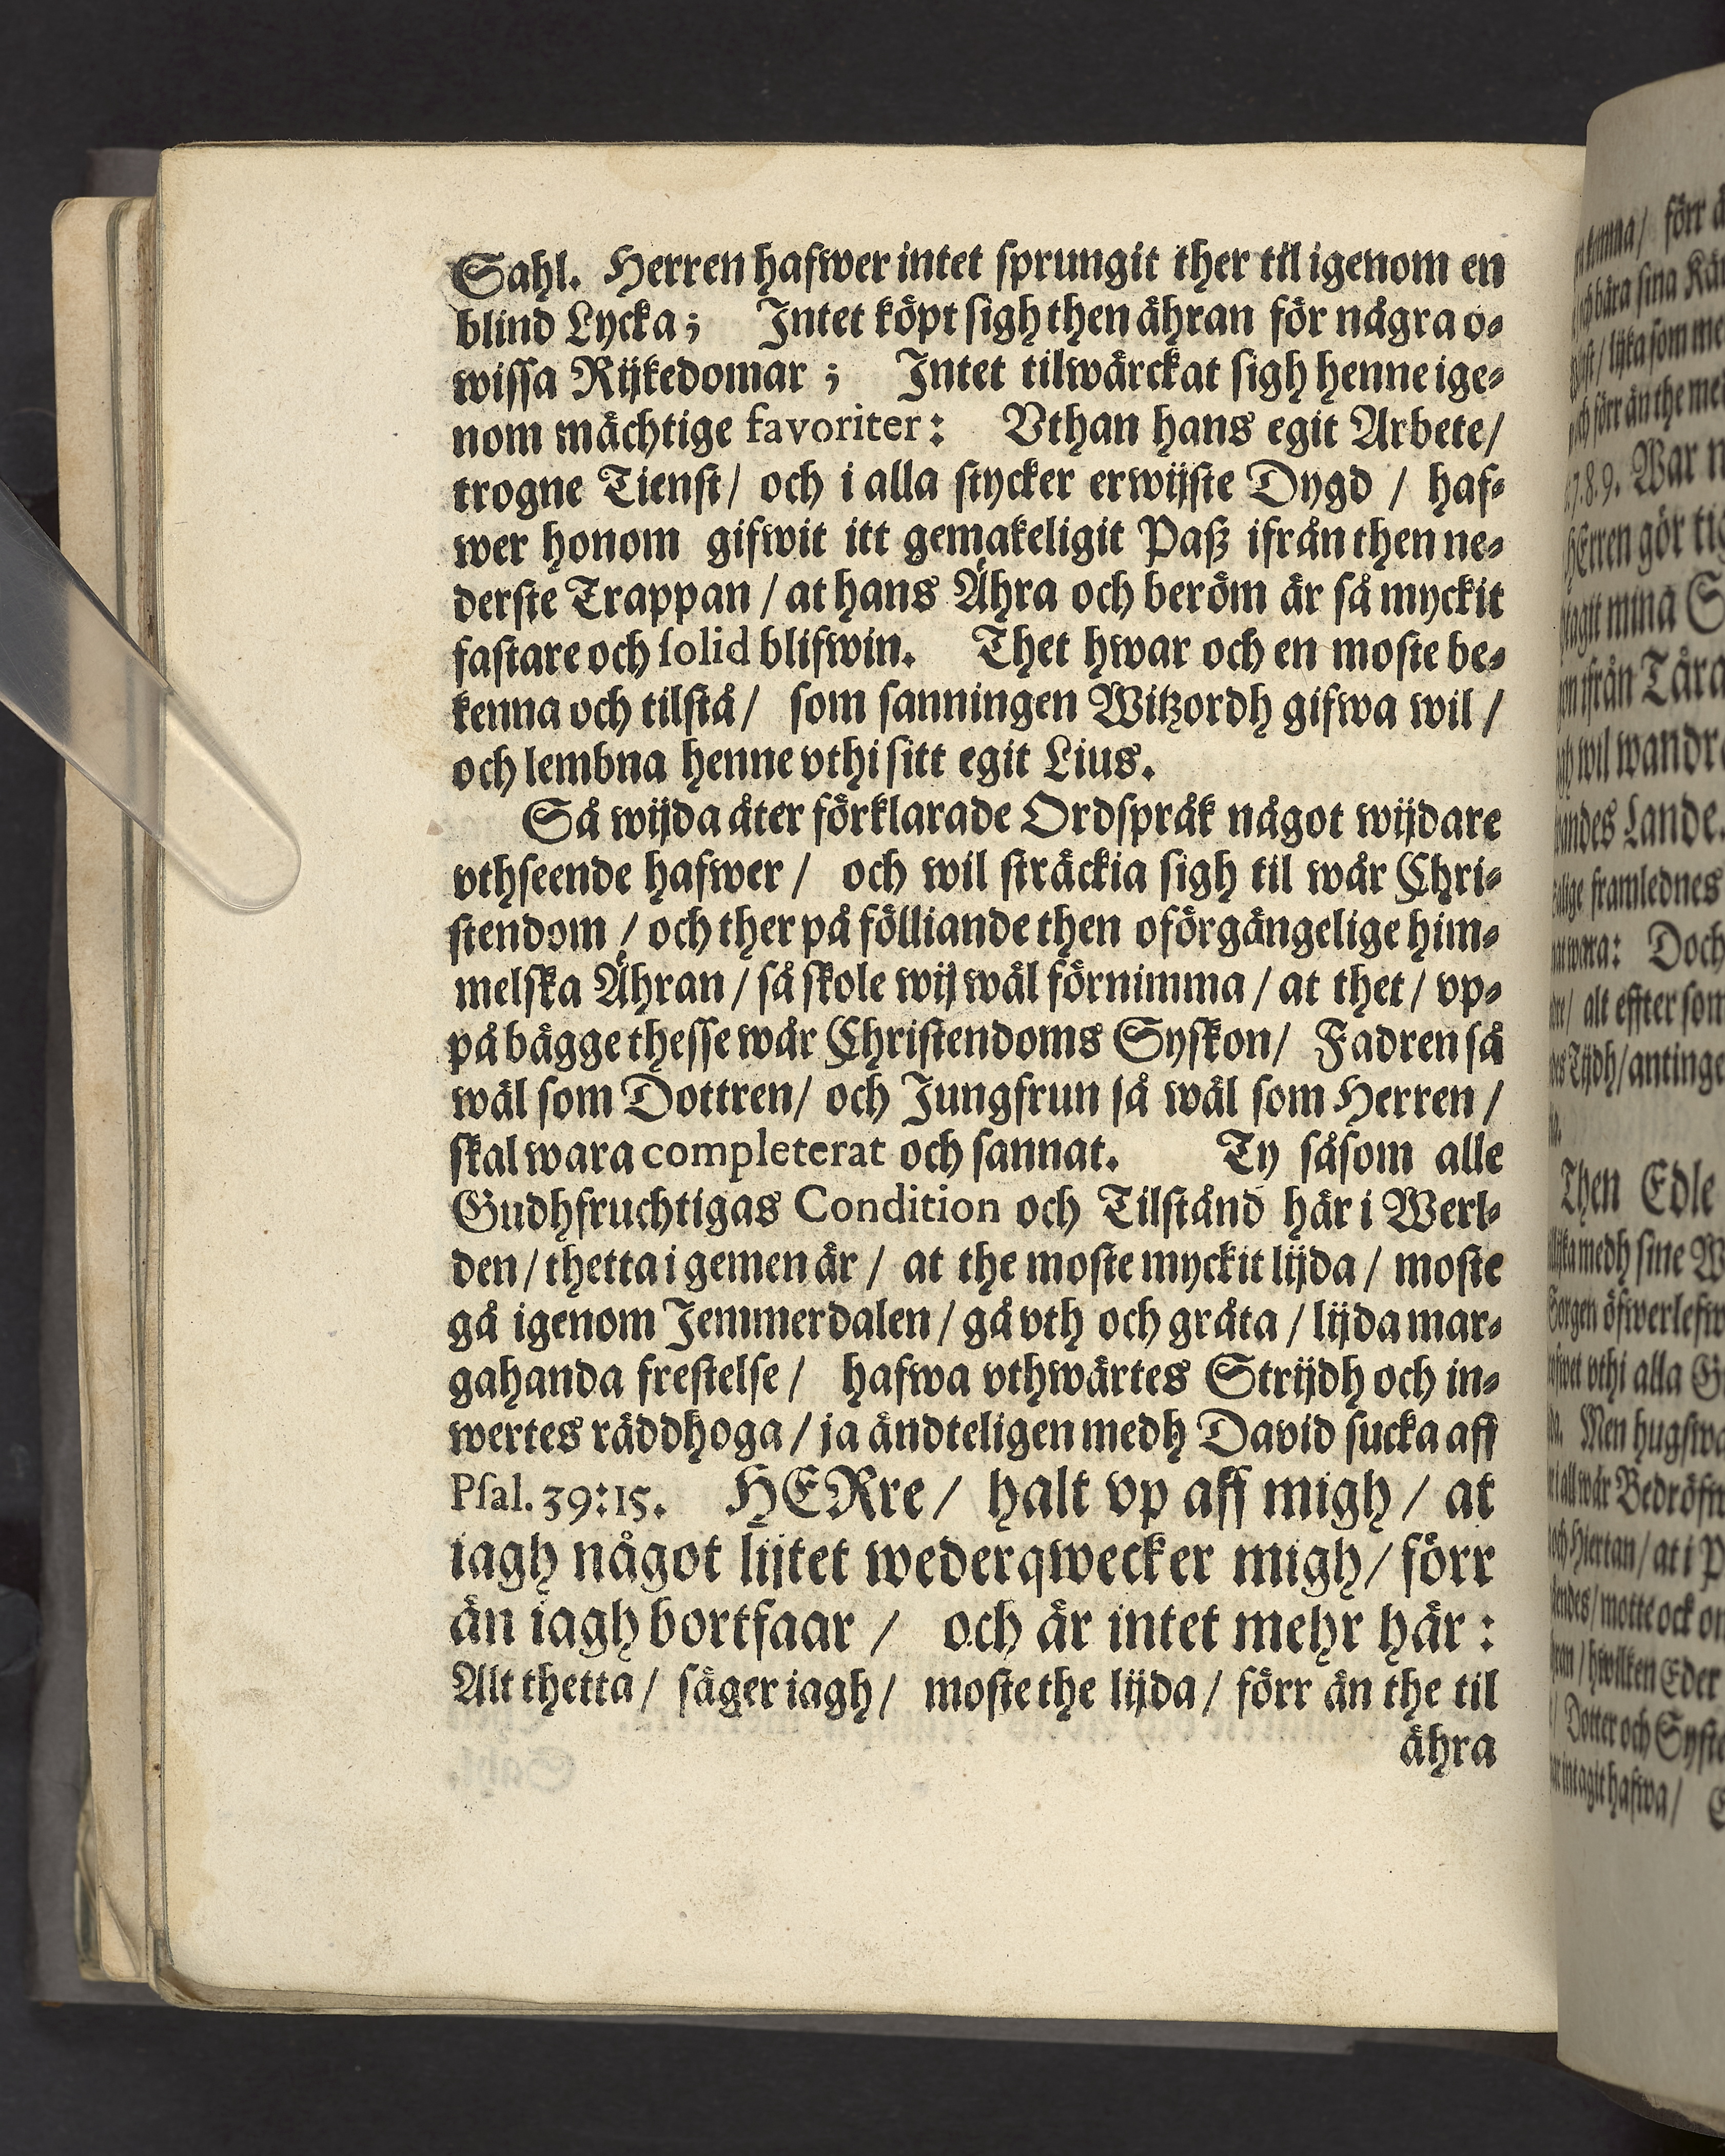 Sahl. Herren hafwer intet sprungit ther til igenom en
blind Lycka; Intet köpt sigh then ähran för några o-
wissa Rijkedomar ; Intet tilwärckat sigh henne ige-
nom mächtige favoriter: Vthan hans egit Arbete/
trogne Tienst/ och i alla stycker erwijste Dygd / haf-
wer honom gifwit itt gemakeligit Paß ifrån then ne-
derste Trappan / at hans Ähra och beröm är så myckit
fastare och solid blifwin. Thet hwar och en moste be-
kenna och tilstå/ som sanningen Witzordh gifwa wil /
och lembna henne vthi sitt egit Lius.
Så wijda åter förklarade Ordspråk något wijdare
vthseende hafwer / och wil sträckia sigh til wår Chri-
stendom / och ther på fölliande then oförgängelige him-
melska Ähran / så skole wij wäl förnimma / at thet / vp-
på bägge thesse wår Christendoms Syskon/ Fadren så
wäl som Dottren/ och Jungfrun så wäl som Herren /
skal wara completerat och sannat. Ty såsom alle
Gudhfruchtigas Condition och Tilstånd här i Werl-
den / thetta i gemen är / at the moste myckit lijda / moste
gå igenom Jemmerdalen / gå vth och gråta / lijda mar-
gahanda frestelse / hafwa vthwärtes Strijdh och in-
wertes räddhoga / ja ändteligen medh David sucka aff
Psal. 39:15. HERre/ halt vp aff migh / at
iagh något lijtet wederqwecker migh/ förr
än iagh bortfaar / och är intet mehr här :
Alt thetta / säger iagh/ moste the lijda / förr än the til
ähra